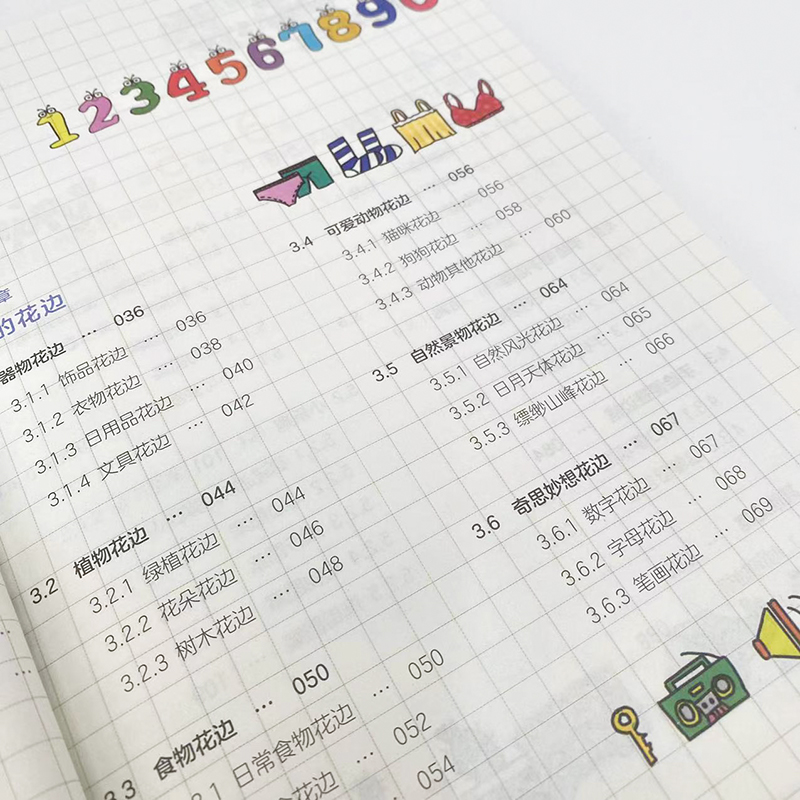 1 2 3 4 5 6 7 8 9 0
章
的花边
器物花边 … 036
3.1.1 饰品花边 … 036
3.1.2 衣物花边 … 038
3.1.3 日用品花边 … 040
3.1.4 文具花边 … 042
3.2 植物花边 … 044
3.2.1 绿植花边 … 044
3.2.2 花朵花边 … 046
3.2.3 树木花边 … 048
3.3 食物花边 … 050
3.1 日常食物花边 … 050
花边 … 052
054
3.4 可爱动物花边 … 056
3.4.1 猫咪花边 … 056
3.4.2 狗狗花边 … 058
3.4.3 动物其他花边 … 060
3.5 自然景物花边 … 064
3.5.1 自然风光花边 … 064
3.5.2 日月天体花边 … 065
3.5.3 缥缈山峰花边 … 066
3.6 奇思妙想花边 … 067
3.6.1 数字花边 … 067
3.6.2 字母花边 … 068
3.6.3 笔画花边 … 069